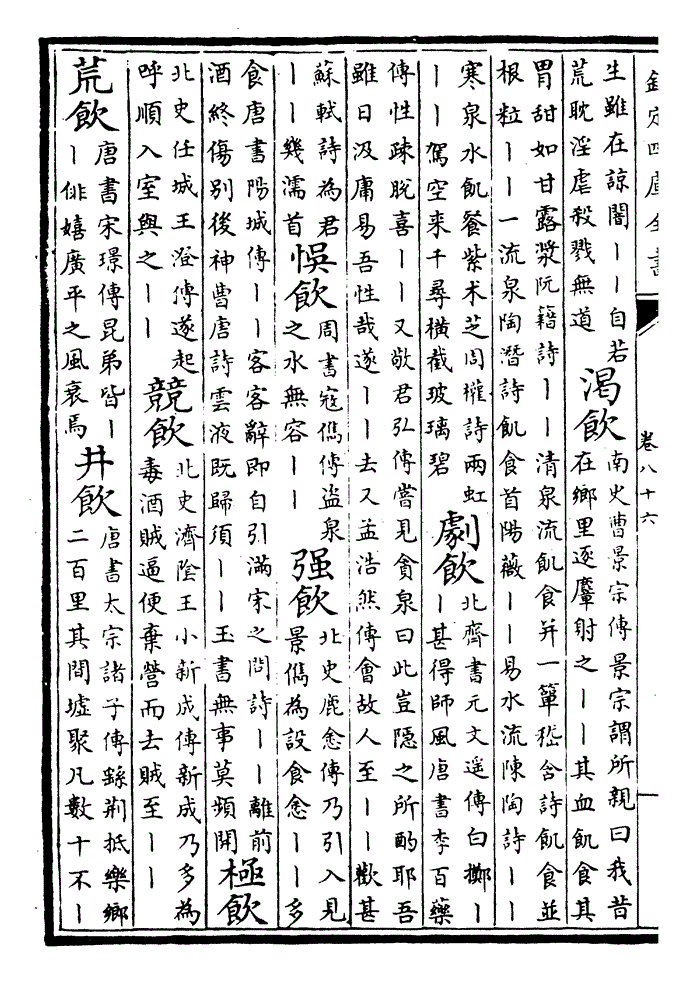 欽定四庫全書
卷八十六
生雖在諒闇丨丨自若
荒耽淫虐殺戮無道
渴飲
南史曹景宗傳景宗謂所親曰我昔
在鄉里逐麞射之丨丨其血飢食其
胃甜如甘露漿阮籍詩丨丨清泉流飢食并一簞嵇含詩飢食並
根粒丨丨一流泉陶潛詩飢食首陽薇丨丨易水流陳陶詩丨丨
寒泉水飢餐紫术芝周權詩兩虹
丨丨駕空来千尋橫截玻璃碧
劇飲
北齊書元文遥傳白擲丨
丨甚得師風唐書李百藥
傳性疎脫喜丨丨又敬君弘傳嘗見貪泉曰此豈隱之所酌耶吾
雖日汲庸易吾性哉遂丨丨去又孟浩然傳會故人至丨丨歡甚
蘇軾詩為君
丨丨幾濡首
悞飲
周書寇儁傳盜泉
之水無容丨丨
强飲
北史鹿悆傳乃引入見
景儁為設食悆丨丨多
食唐書陽城傳丨丨客客辭即自引滿宋之問詩丨丨離前
酒終傷別後神曹唐詩雲液既歸須丨丨玉書無事莫頻開
極飲
北史任城王澄傳遂起
呼順入室與之丨丨
競飲
北史濟陰王小新成傳新成乃多為
毒酒賊逼便棄營而去賊至丨丨
荒飲
唐書宋璟傳昆弟皆丨
丨俳嬉廣平之風衰焉
井飲
唐書太宗諸子傳繇荆抵樂鄉
二百里其間墟聚凡數十不丨